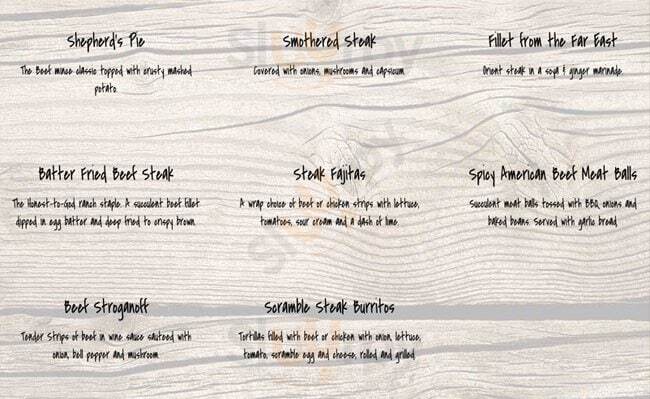 Shepherd's Pie
The Beef mince classic topped with crusty mashed
potato.
Smothered Steak
Covered with onions, mushrooms and capsicum.
Fillet from the Far East
Orient steak in a soya & ginger marinade.
Batter Fried Beef Steak
The Honest-to-God ranch staple. A succulent beef fillet
dipped in egg batter and deep fried to crispy brown.
Steak Fajitas
A wrap choice of beef or chicken strips with lettuce,
tomatoes, sour cream and a dash of lime.
Spicy American Beef Meat Balls
Succulent meat balls tossed with BBQ, onions and
baked beans. Served with garlic bread.
Beef Stroganoff
Tender Strips of beef in wine sauce sauteed with
onion, bell pepper and mushroom.
Scramble Steak Burritos
Tortillas filled with beef or chicken with onion, lettuce,
tomato, scramble egg and cheese, rolled and grilled.